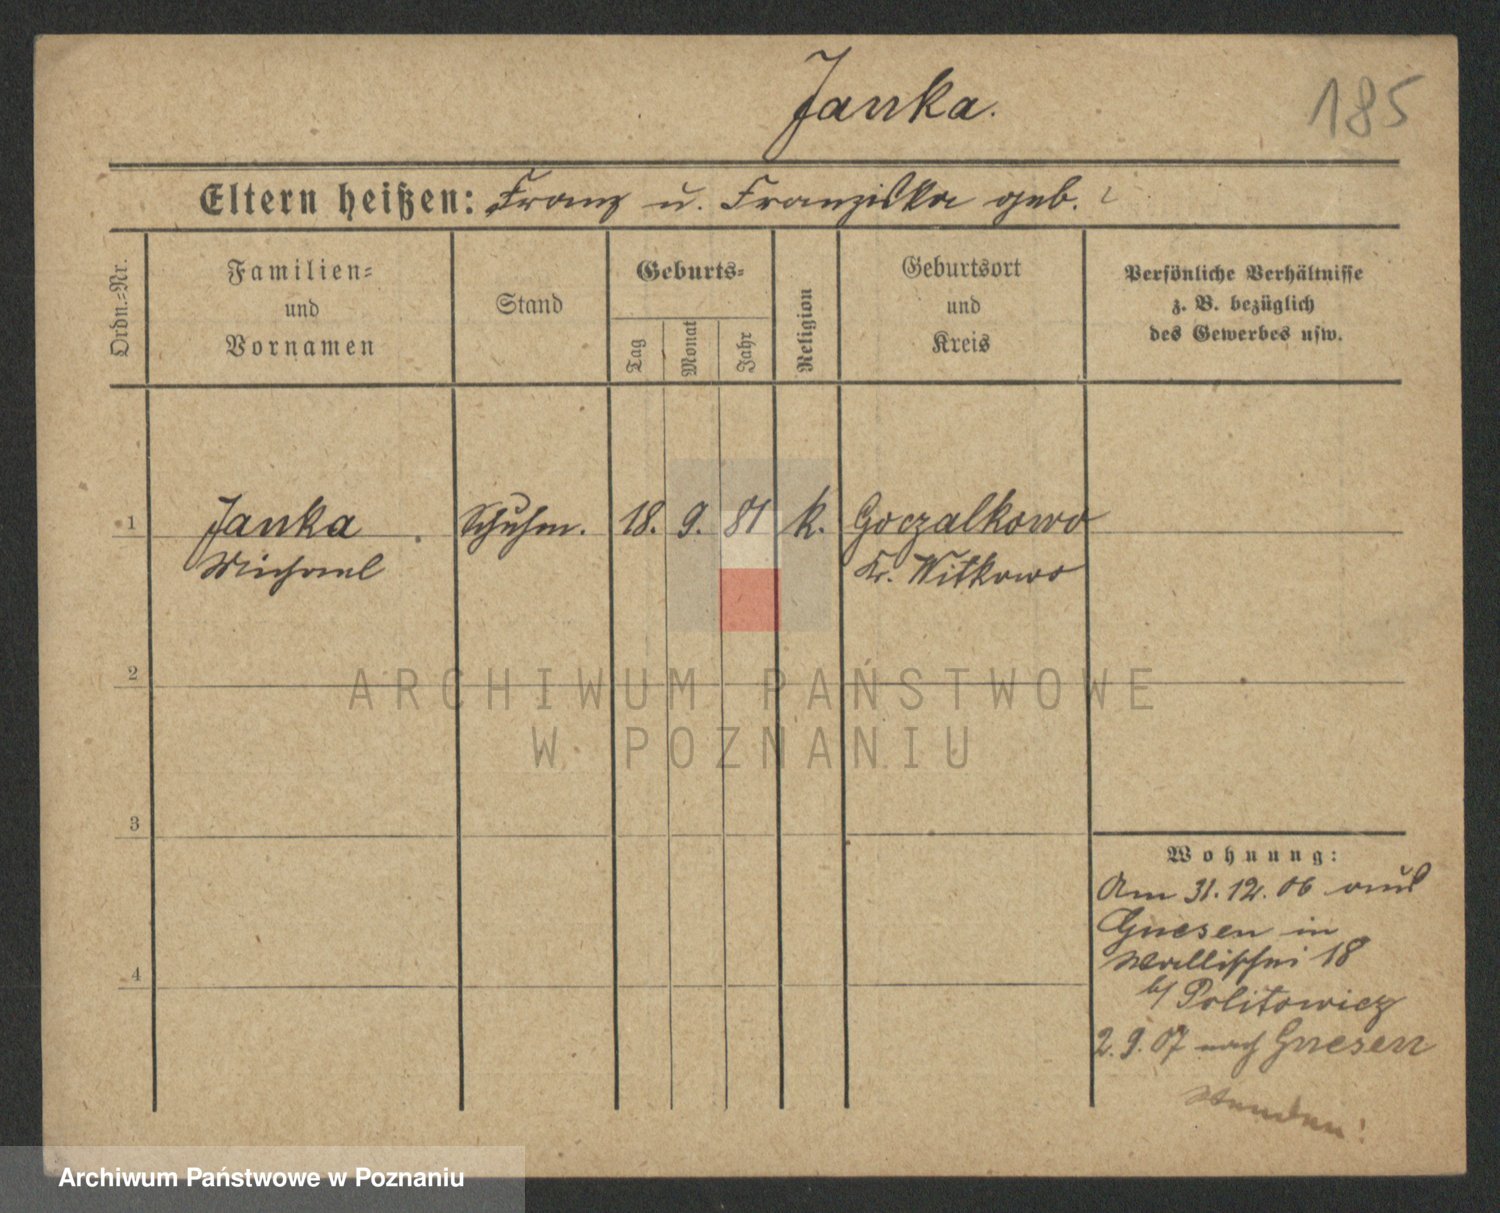 Janka.
185
Eltern heißen: Franz u. Franziska geb. ?
Ordn.=Nr.
Familien=
und
Vornamen
Stand
Geburts=
Tag
Monat
Jahr
Religion
Geburtsort
und
Kreis
Persönliche Verhältnisse
z. B. bezüglich
des Gewerbes usw.
1
Janka Schuhm. 18. 9. 81 k. Goczalkowo
Michael Kr. Witkowo
2
ARCHIWUM PAŃSTWOWE
W POZNANIU
3
Wohnung:
Am 31. 12. 06 aus
Gnesen in
Wallischei 18
b/ Politowicz
4
2. 9. 07 nach Gnesen
Wenden!
Archiwum Państwowe w Poznaniu